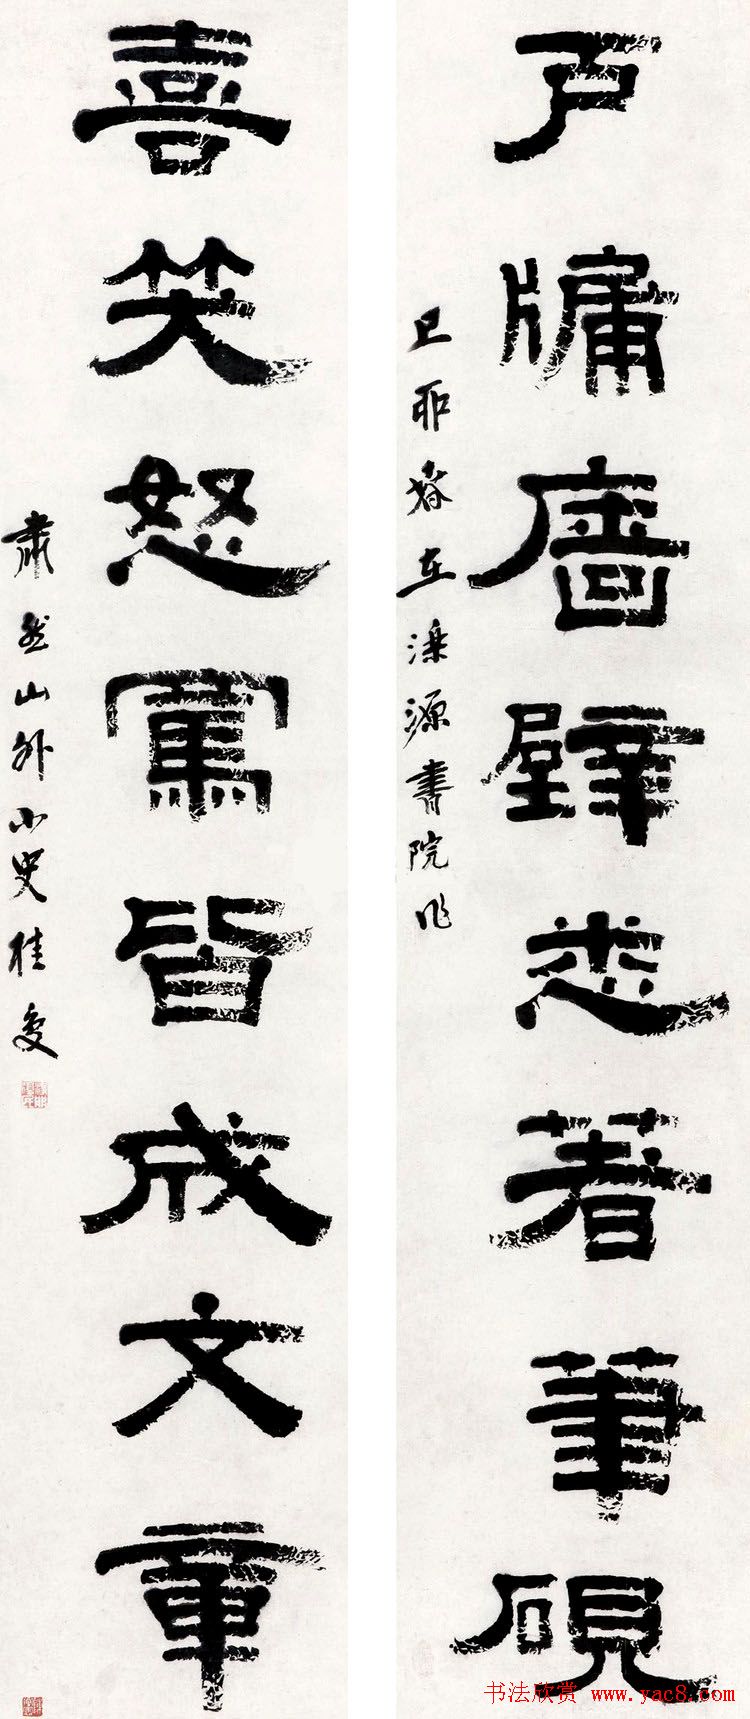 戶牖廧壁悉著筆硯
己卯春在濼源書院作
喜笑怒罵皆成文章
肅然山外小史桂馥
书法欣赏 www.yac8.com